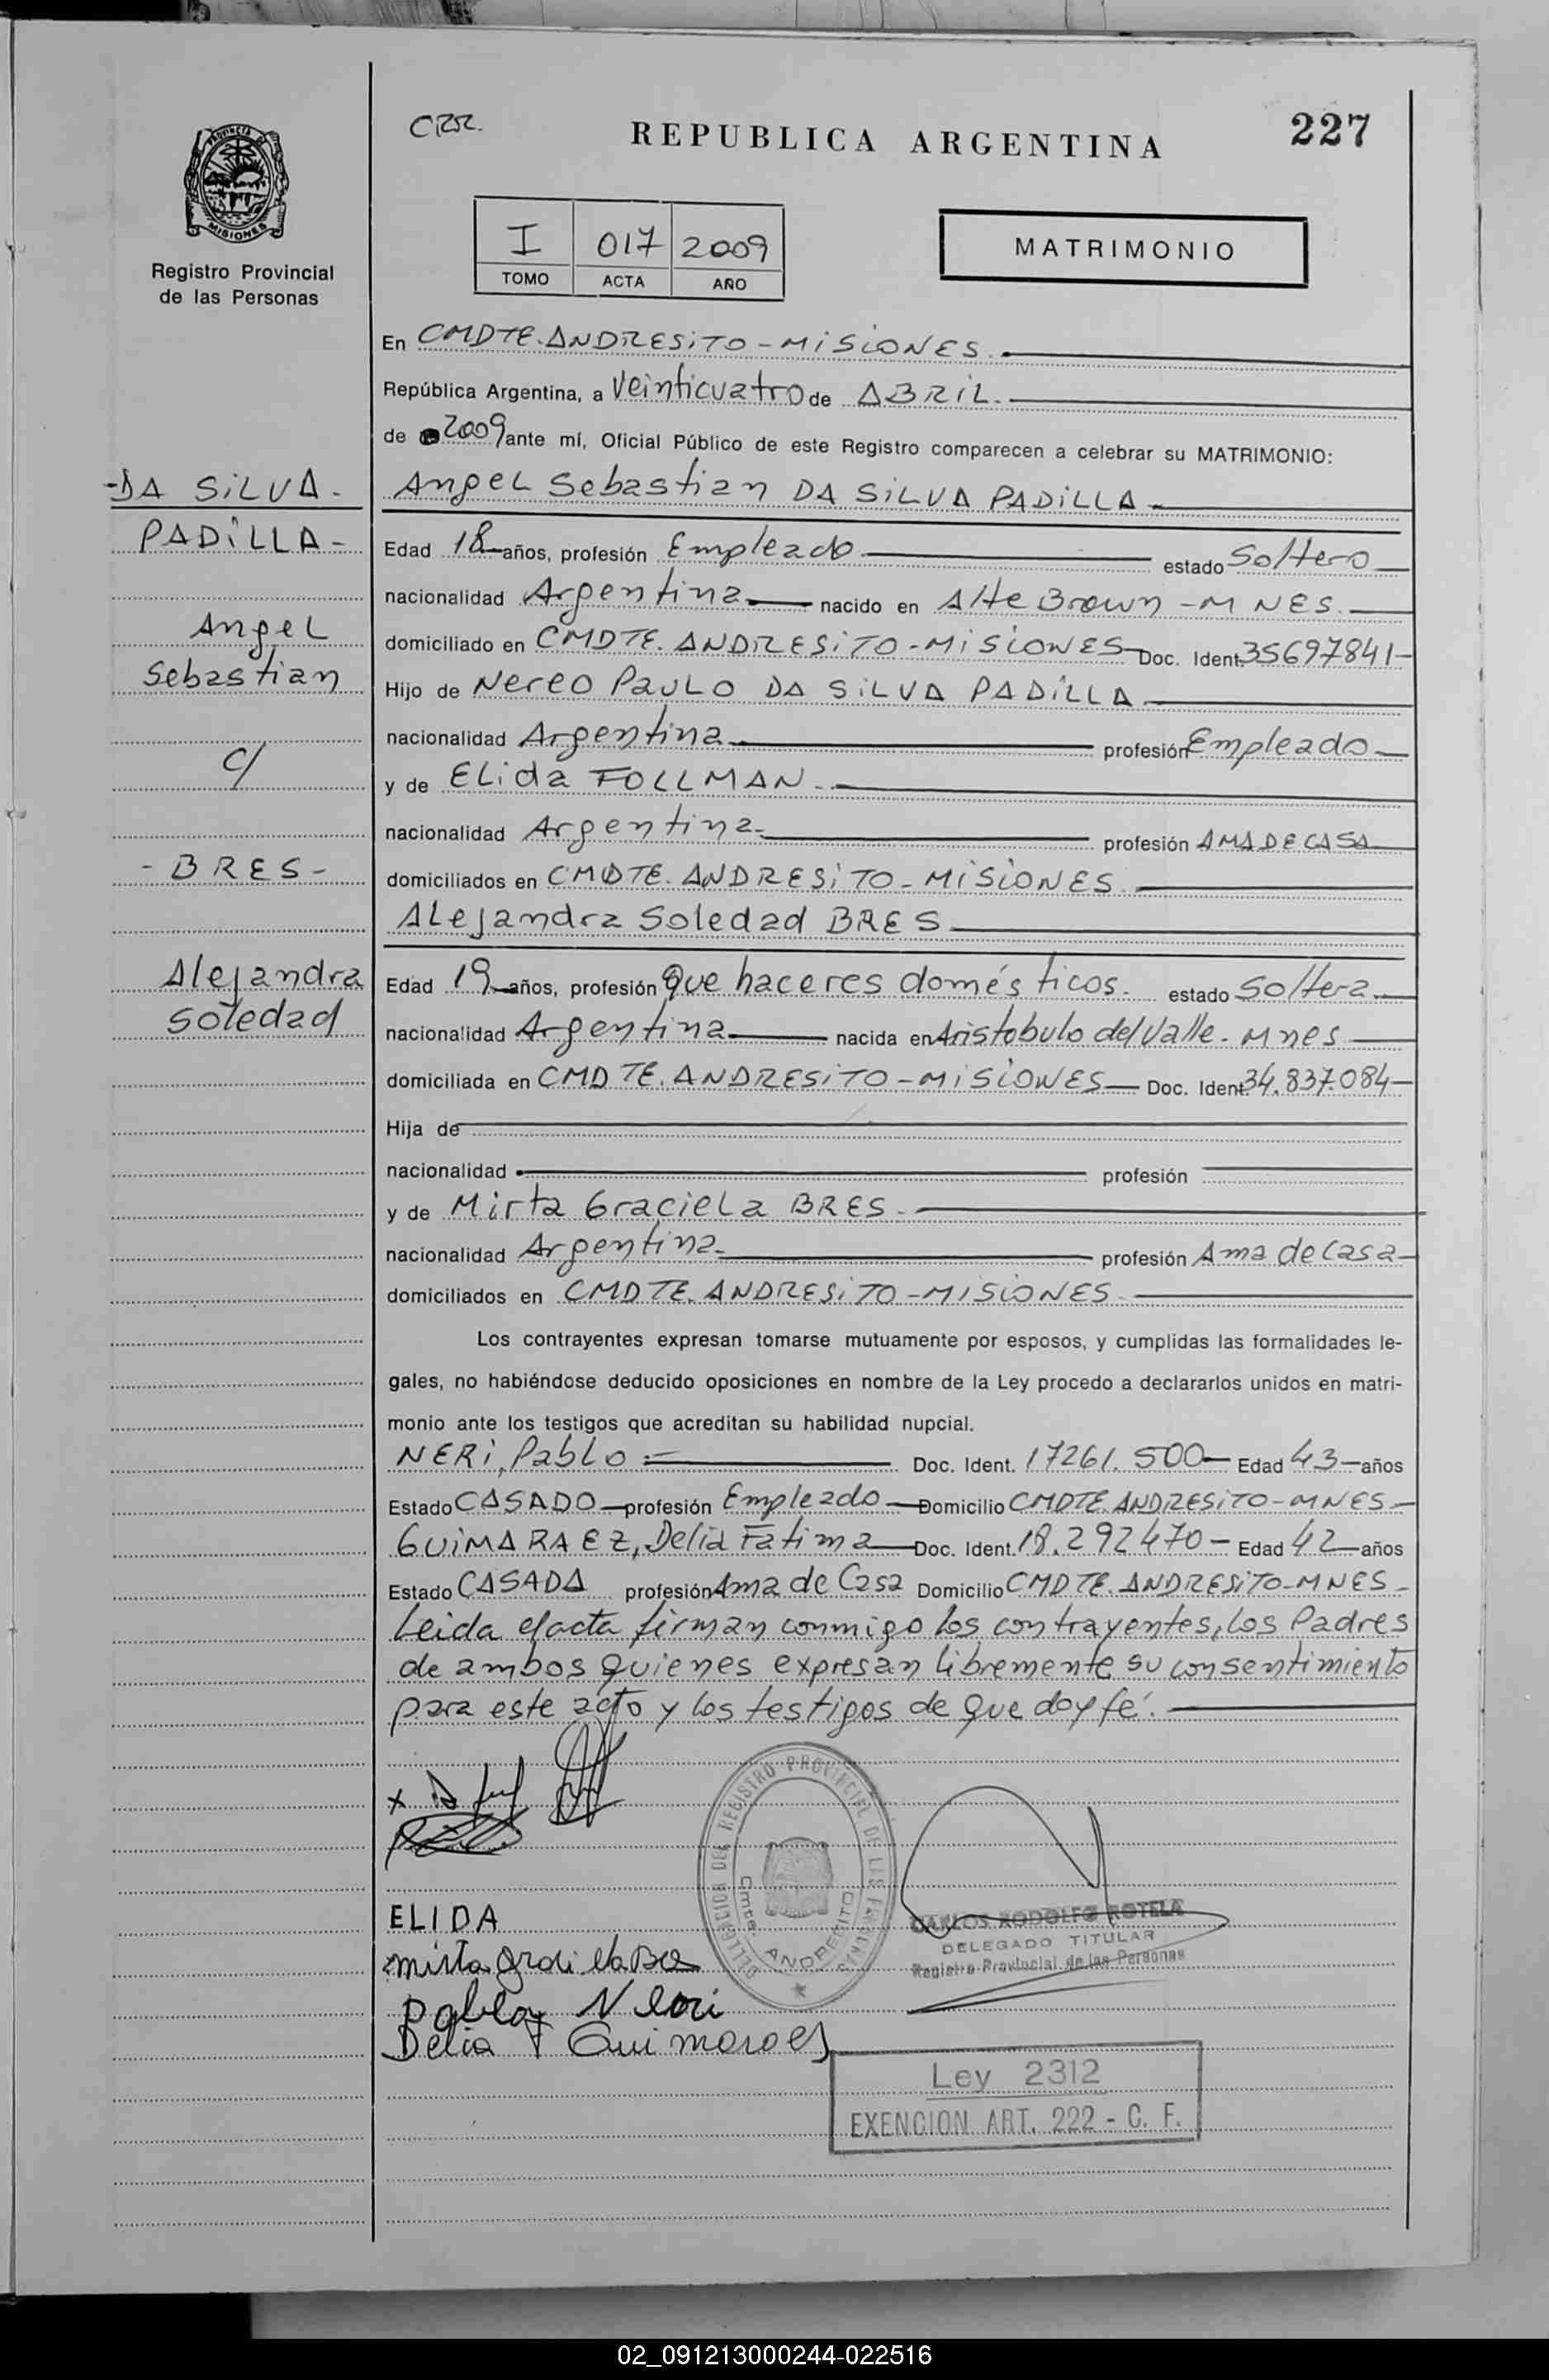 CRR.
REPUBLICA ARGENTINA
227
PROVINCIA DE
MISIONES
Registro Provincial
de las Personas
I 017 2009
TOMO ACTA AÑO
MATRIMONIO
En CMDTE. ANDRESITO - MISIONES.
República Argentina, a Veinticuatro de ABRIL.
de 2009 ante mí, Oficial Público de este Registro comparecen a celebrar su MATRIMONIO:
-DA SILVA-
PADILLA-
Angel
Sebastian
c/
- BRES -
Alejandra
Soledad
Angel Sebastian DA SILVA PADILLA
Edad 18 años, profesión Empleado estado Soltero
nacionalidad Argentina nacido en Alte Brown - MNES.
domiciliado en CMDTE. ANDRESITO - MISIONES Doc. Ident. 35697841-
Hijo de Nereo Paulo DA SILVA PADILLA
nacionalidad Argentina profesión Empleado
y de Elida FOLLMAN.
nacionalidad Argentina. profesión AMA DE CASA
domiciliados en CMDTE. ANDRESITO - MISIONES.
Alejandra Soledad BRES
Edad 19 años, profesión Que haceres domésticos. estado Soltera
nacionalidad Argentina nacida en Aristobulo del Valle - Mnes
domiciliada en CMDTE. ANDRESITO - MISIONES Doc. Ident. 34.837.084-
Hija de
nacionalidad profesión
y de Mirta Graciela BRES.
nacionalidad Argentina. profesión Ama de Casa
domiciliados en CMDTE. ANDRESITO - MISIONES.
Los contrayentes expresan tomarse mutuamente por esposos, y cumplidas las formalidades le-
gales, no habiéndose deducido oposiciones en nombre de la Ley procedo a declararlos unidos en matri-
monio ante los testigos que acreditan su habilidad nupcial.
NERI, Pablo Doc. Ident. 17261.500 Edad 43 años
Estado CASADO profesión Empleado Domicilio CMDTE ANDRESITO - MNES
GUIMARAEZ, Delia Fatima Doc. Ident. 18.292470 - Edad 42 años
Estado CASADA profesión Ama de Casa Domicilio CMDTE. ANDRESITO - MNES
Leida el acta firman conmigo los contrayentes, los Padres
de ambos quienes expresan libremente su consentimiento
para este acto y los testigos de que doy fé.
DELEGACION DEL REGISTRO PROVINCIAL DE LAS PERSONAS
Cmte. ANDRESITO
CARLOS RODOLFO ROTELA
DELEGADO TITULAR
Registro Provincial de las Personas
ELIDA
mirta
Pablo Neri
Delia F Guimaraes
Ley 2312
EXENCION ART. 222 - C. F.
02_091213000244-022516